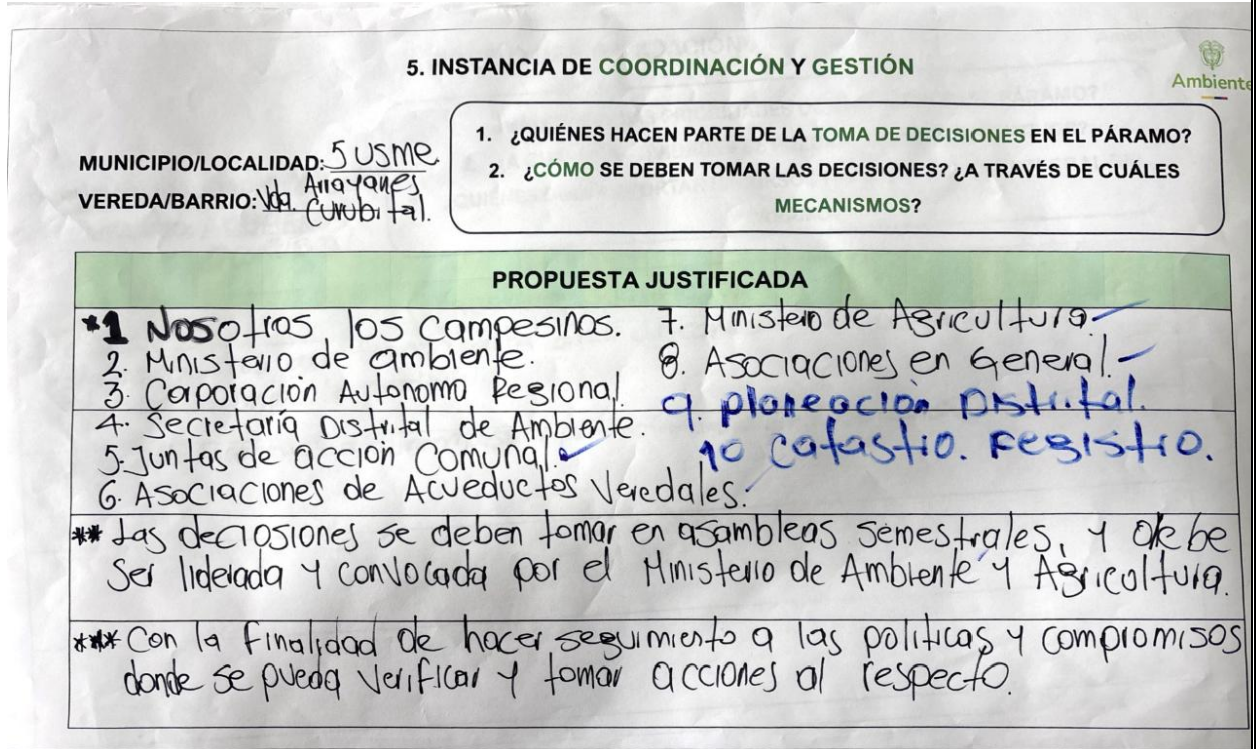 5. INSTANCIA DE COORDINACIÓN Y GESTIÓN
Ambiente
MUNICIPIO/LOCALIDAD: 5 USME
VEREDA/BARRIO: Vda. Arrayanes
Curubital.
1. ¿QUIÉNES HACEN PARTE DE LA TOMA DE DECISIONES EN EL PÁRAMO?
2. ¿CÓMO SE DEBEN TOMAR LAS DECISIONES? ¿A TRAVÉS DE CUÁLES
MECANISMOS?
PROPUESTA JUSTIFICADA
*1 Nosotros los campesinos.
2. Ministerio de ambiente.
3. Corporación Autonomo Regional.
4. Secretaría Distrital de Ambiente.
5. Juntas de acción Comunal.
6. Asociaciones de Acueductos Veredales.
7. Ministerio de Agricultura.
8. Asociaciones en General.
9. planeación Distrital.
10 catastro. Registro.
** Las deciosiones se deben tomar en asambleas semestrales, y debe
Ser liderada y convocada por el Ministerio de Ambiente y Agricoltura.
*** Con la finalidad de hacer seguimiento a las politicas y compromisos
donde se pueda verificar y tomar acciones al respecto.